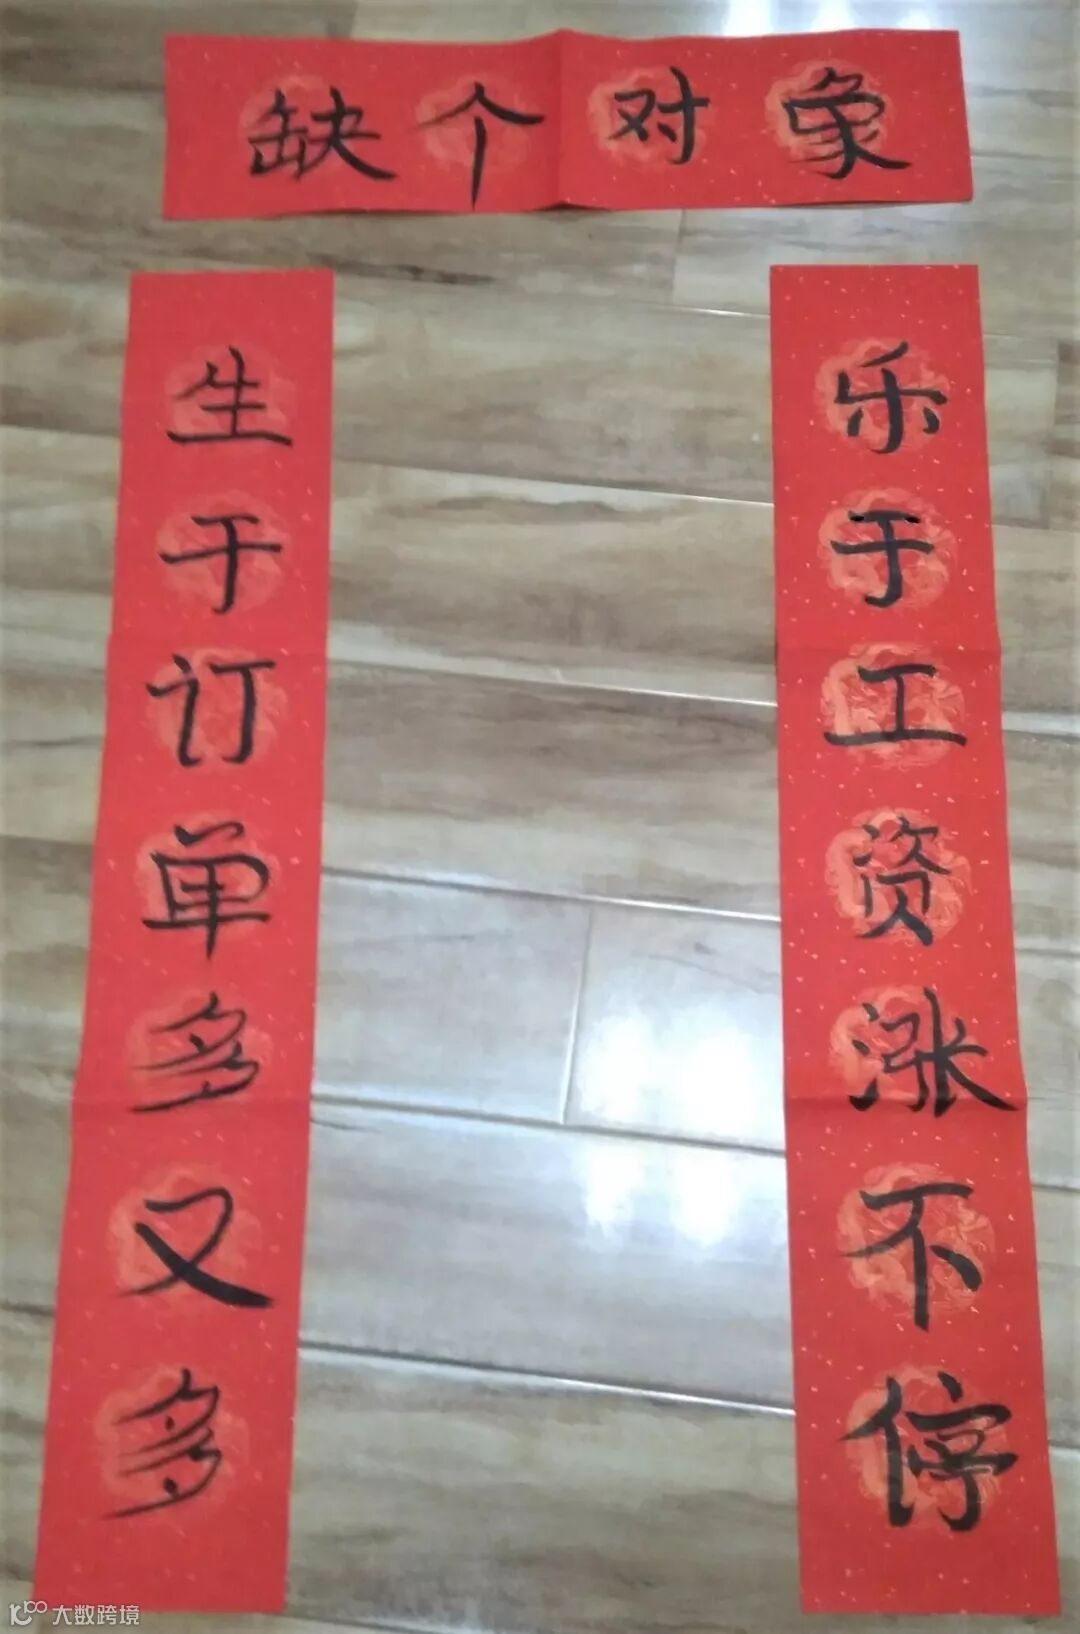 缺个对象
生于订单多又多
乐于工资涨不停
大数跨境